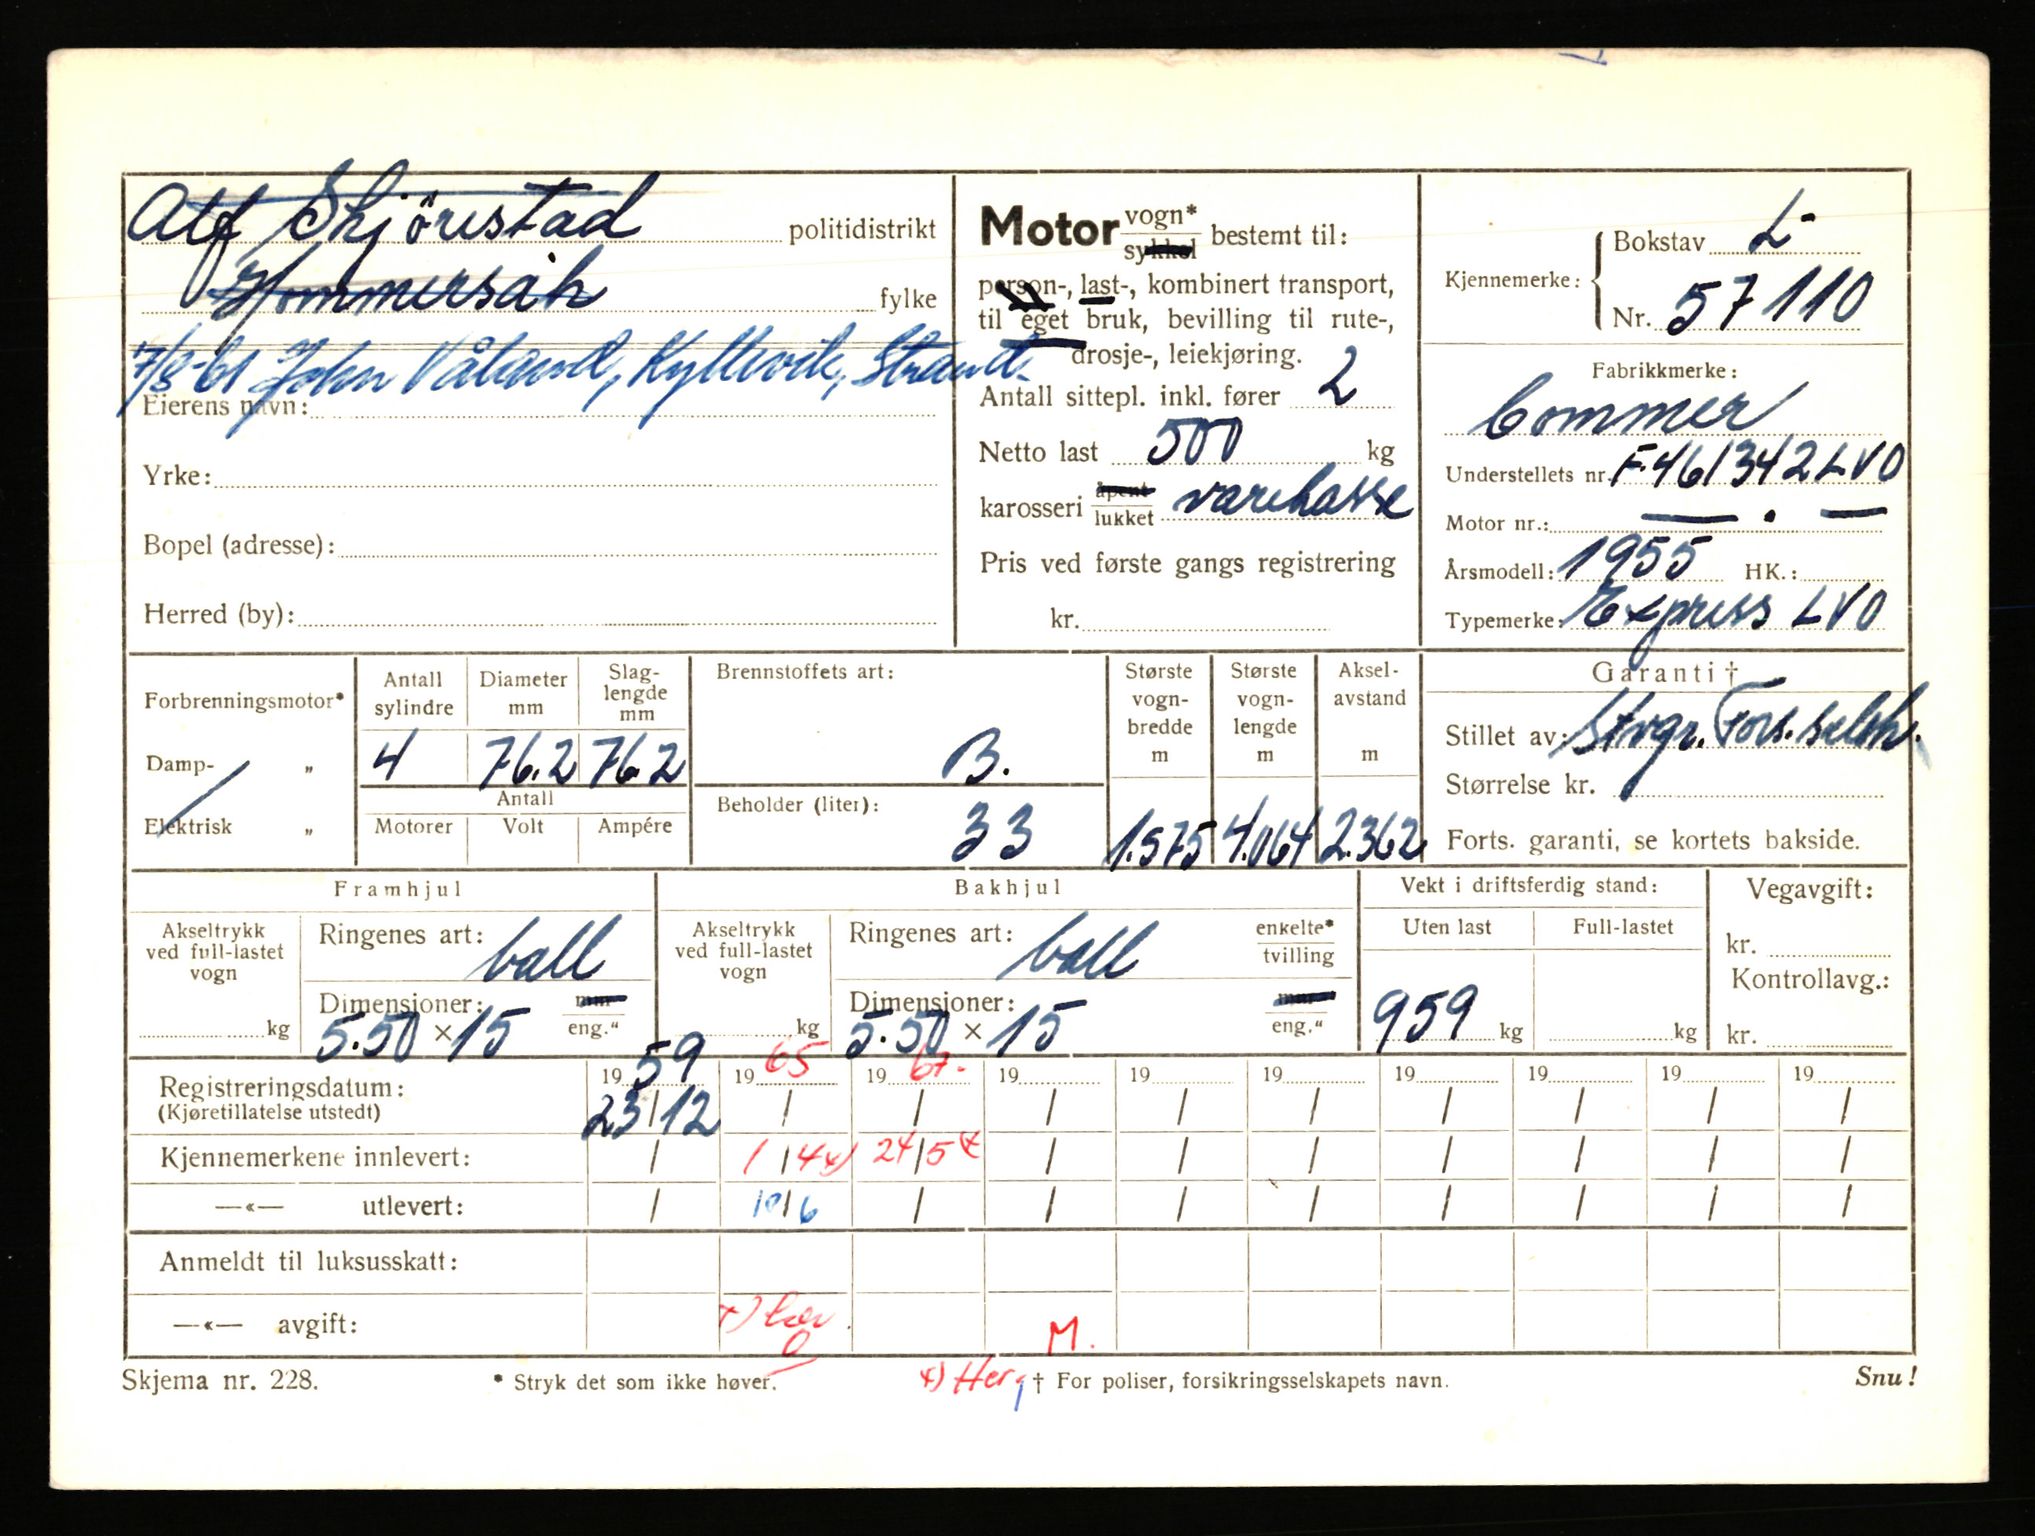 Alf Skjörestad politidistrikt
Hommersåk fylke
7/8-61 John Våland, Kyllevik, Strand.
Eierens navn:
Yrke:
Bopel (adresse):
Herred (by):
Motor vogn* sykkel bestemt til:
person-, last-, kombinert transport,
til eget bruk, bevilling til rute-,
drosje-, leiekjøring.
Antall sittepl. inkl. fører 2
Netto last 500 kg
karosseri åpent lukket varekasse
Pris ved første gangs registrering
kr.
Kjennemerke: Bokstav L-
Nr. 57110
Fabrikkmerke:
Commer
Understellets nr. F.461342LVO
Motor nr.: — . —
Årsmodell: 1955 HK.:
Typemerke: Express LVO
Forbrenningsmotor*
Damp- „
Elektrisk „
Antall sylindre
Diameter mm
Slag-lengde mm
4 76.2 76.2
Antall
Motorer Volt Ampére
Brennstoffets art:
B.
Beholder (liter):
33
Største vogn-bredde m
1.575
Største vogn-lengde m
4.064
Aksel-avstand m
2.362
Garanti †
Stillet av: Stvgr. Fors.selsk.
Størrelse kr.
Forts. garanti, se kortets bakside.
Framhjul
Akseltrykk ved full-lastet vogn
kg
Ringenes art: ball
Dimensjoner: mm
5.50 × 15 eng."
Bakhjul
Akseltrykk ved full-lastet vogn
kg
Ringenes art: ball enkelte* tvilling
Dimensjoner: mm
5.50 × 15 eng."
Vekt i driftsferdig stand:
Uten last Full-lastet
959 kg kg
Vegavgift:
kr.
Kontrollavg.:
kr.
Registreringsdatum: 19 59 19 65 19 67. 19 19 19 19 19 19 19
(Kjøretillatelse utstedt) 23/12 / / / / / / / / /
Kjennemerkene innlevert: / 1/4 x) 24/5 x / / / / / / /
—«— utlevert: / 10/6 / / / / / / / /
Anmeldt til luksusskatt:
—«— avgift: x) M.
Skjema nr. 228. * Stryk det som ikke høver. x) Her † For poliser, forsikringsselskapets navn. Snu!